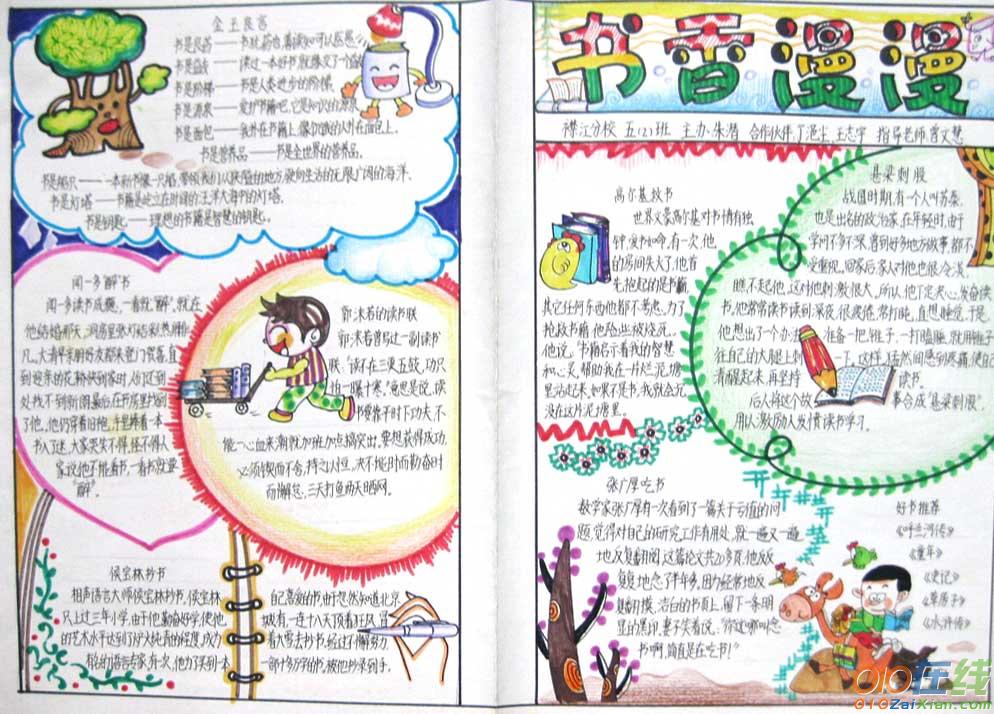 书香漫漫
襟江分校 五(2)班 主办:朱潜 合作伙伴:丁滟尘、王志宇 指导老师:曹文慧
金玉良言
书是良药——书犹药也,善读之可以医愚。
书是益友——读过一本好书,就像交了一个益友。
书是阶梯——书是人类进步的阶梯。
书是源泉——爱护书籍吧,它是知识的源泉。
书是面包——我扑在书籍上,像饥饿的人扑在面包上。
书是营养品——书是全世界的营养品。
书是船只——一本新书像一只船,带领我们从狭隘的地方,驶向生活的无限广阔的海洋。
书是灯塔——书籍是屹立在时间的汪洋大海中的灯塔。
书是钥匙——理想的书籍是智慧的钥匙。
闻一多"醉"书
闻一多读书成瘾,一看就"醉",就在
他结婚那天,洞房里张灯结彩,热闹非
凡。大清早亲朋好友都来登门贺喜,直
到迎亲的花轿快到家时,人们还到
处找不到新郎,最后在书房里找到
了他。他仍穿着旧袍,手里捧着一本
书入了迷。大家哭笑不得,怪不得人
家说他不能看书,一看书就要
"醉"。
郭沫若的读书联
郭沫若曾写过一副读书
联:"读不在三更五鼓,功只
怕一曝十寒。"意思是说,读
书要靠平时下功夫,不
能一心血来潮就加班加点搞突出。要想获得成功,
必须锲而不舍,持之以恒,决不能时而勤奋时
而懈怠,三天打鱼两天晒网。
侯宝林抄书
相声语言大师侯宝林抄书,侯宝林
只上过三年小学,由于他勤奋好学,使他
的艺术水平达到了炉火纯青的程度,成为
有名的语言专家。有次,他为了买到一本
自己喜爱的书,
城,有一连十八天顶着狂风,冒
着大雪去抄书,经过不懈努力,
一部十多万字的书,被他抄录到手。
高尔基救书
世界文豪高尔基对书情有独
钟,爱书如命。有一次,他
的房间失火了,他首
先抱起的是书籍,
其它任何东西他都不考虑。为了
抢救书籍,他险些被烧死。
他说:"书籍启示着我的智慧
和心灵,帮助我在一片烂泥塘
里站起来,如果不是书,我就会沉
没在这片泥塘里。
悬梁刺股
战国时期,有一个人叫苏秦,
也是出名的政治家。在年轻时,由于
学问不多不深,曾到好多地方做事,都不
受重视。回家后,家人对他也很冷淡,
瞧不起他。这对他刺激很大。所以,他下定决心,发奋读
书。他常常读书读到深夜,很疲倦,常打盹,直想睡觉。于是,
他想出了一个办法 准备一把锥子,一打瞌睡,就用锥子
往自己的大腿上刺 一下。这样,猛然间感到疼痛,使自己
清醒起来,再坚持 读书。
后人将这个故 事合成"悬梁刺股",
用以激励人发愤读书学习。
张广厚吃书
数学家张广厚有一次看到了一篇关于亏值的问
题,觉得对自己的研究工作有用处,就一遍又一遍
地反复翻阅。这篇论文共20多页,他反反
复复地念了半年多。因为经常地反
复翻摸,洁白的书页上,留下一条明
显的黑印。妻子笑着说:"你这哪叫念
书啊,简直是在吃书!"
好书推荐
《呼兰河传》
《童年》
《史记》
《草房子》
《水浒传》
010在线
010ZaiXian.com